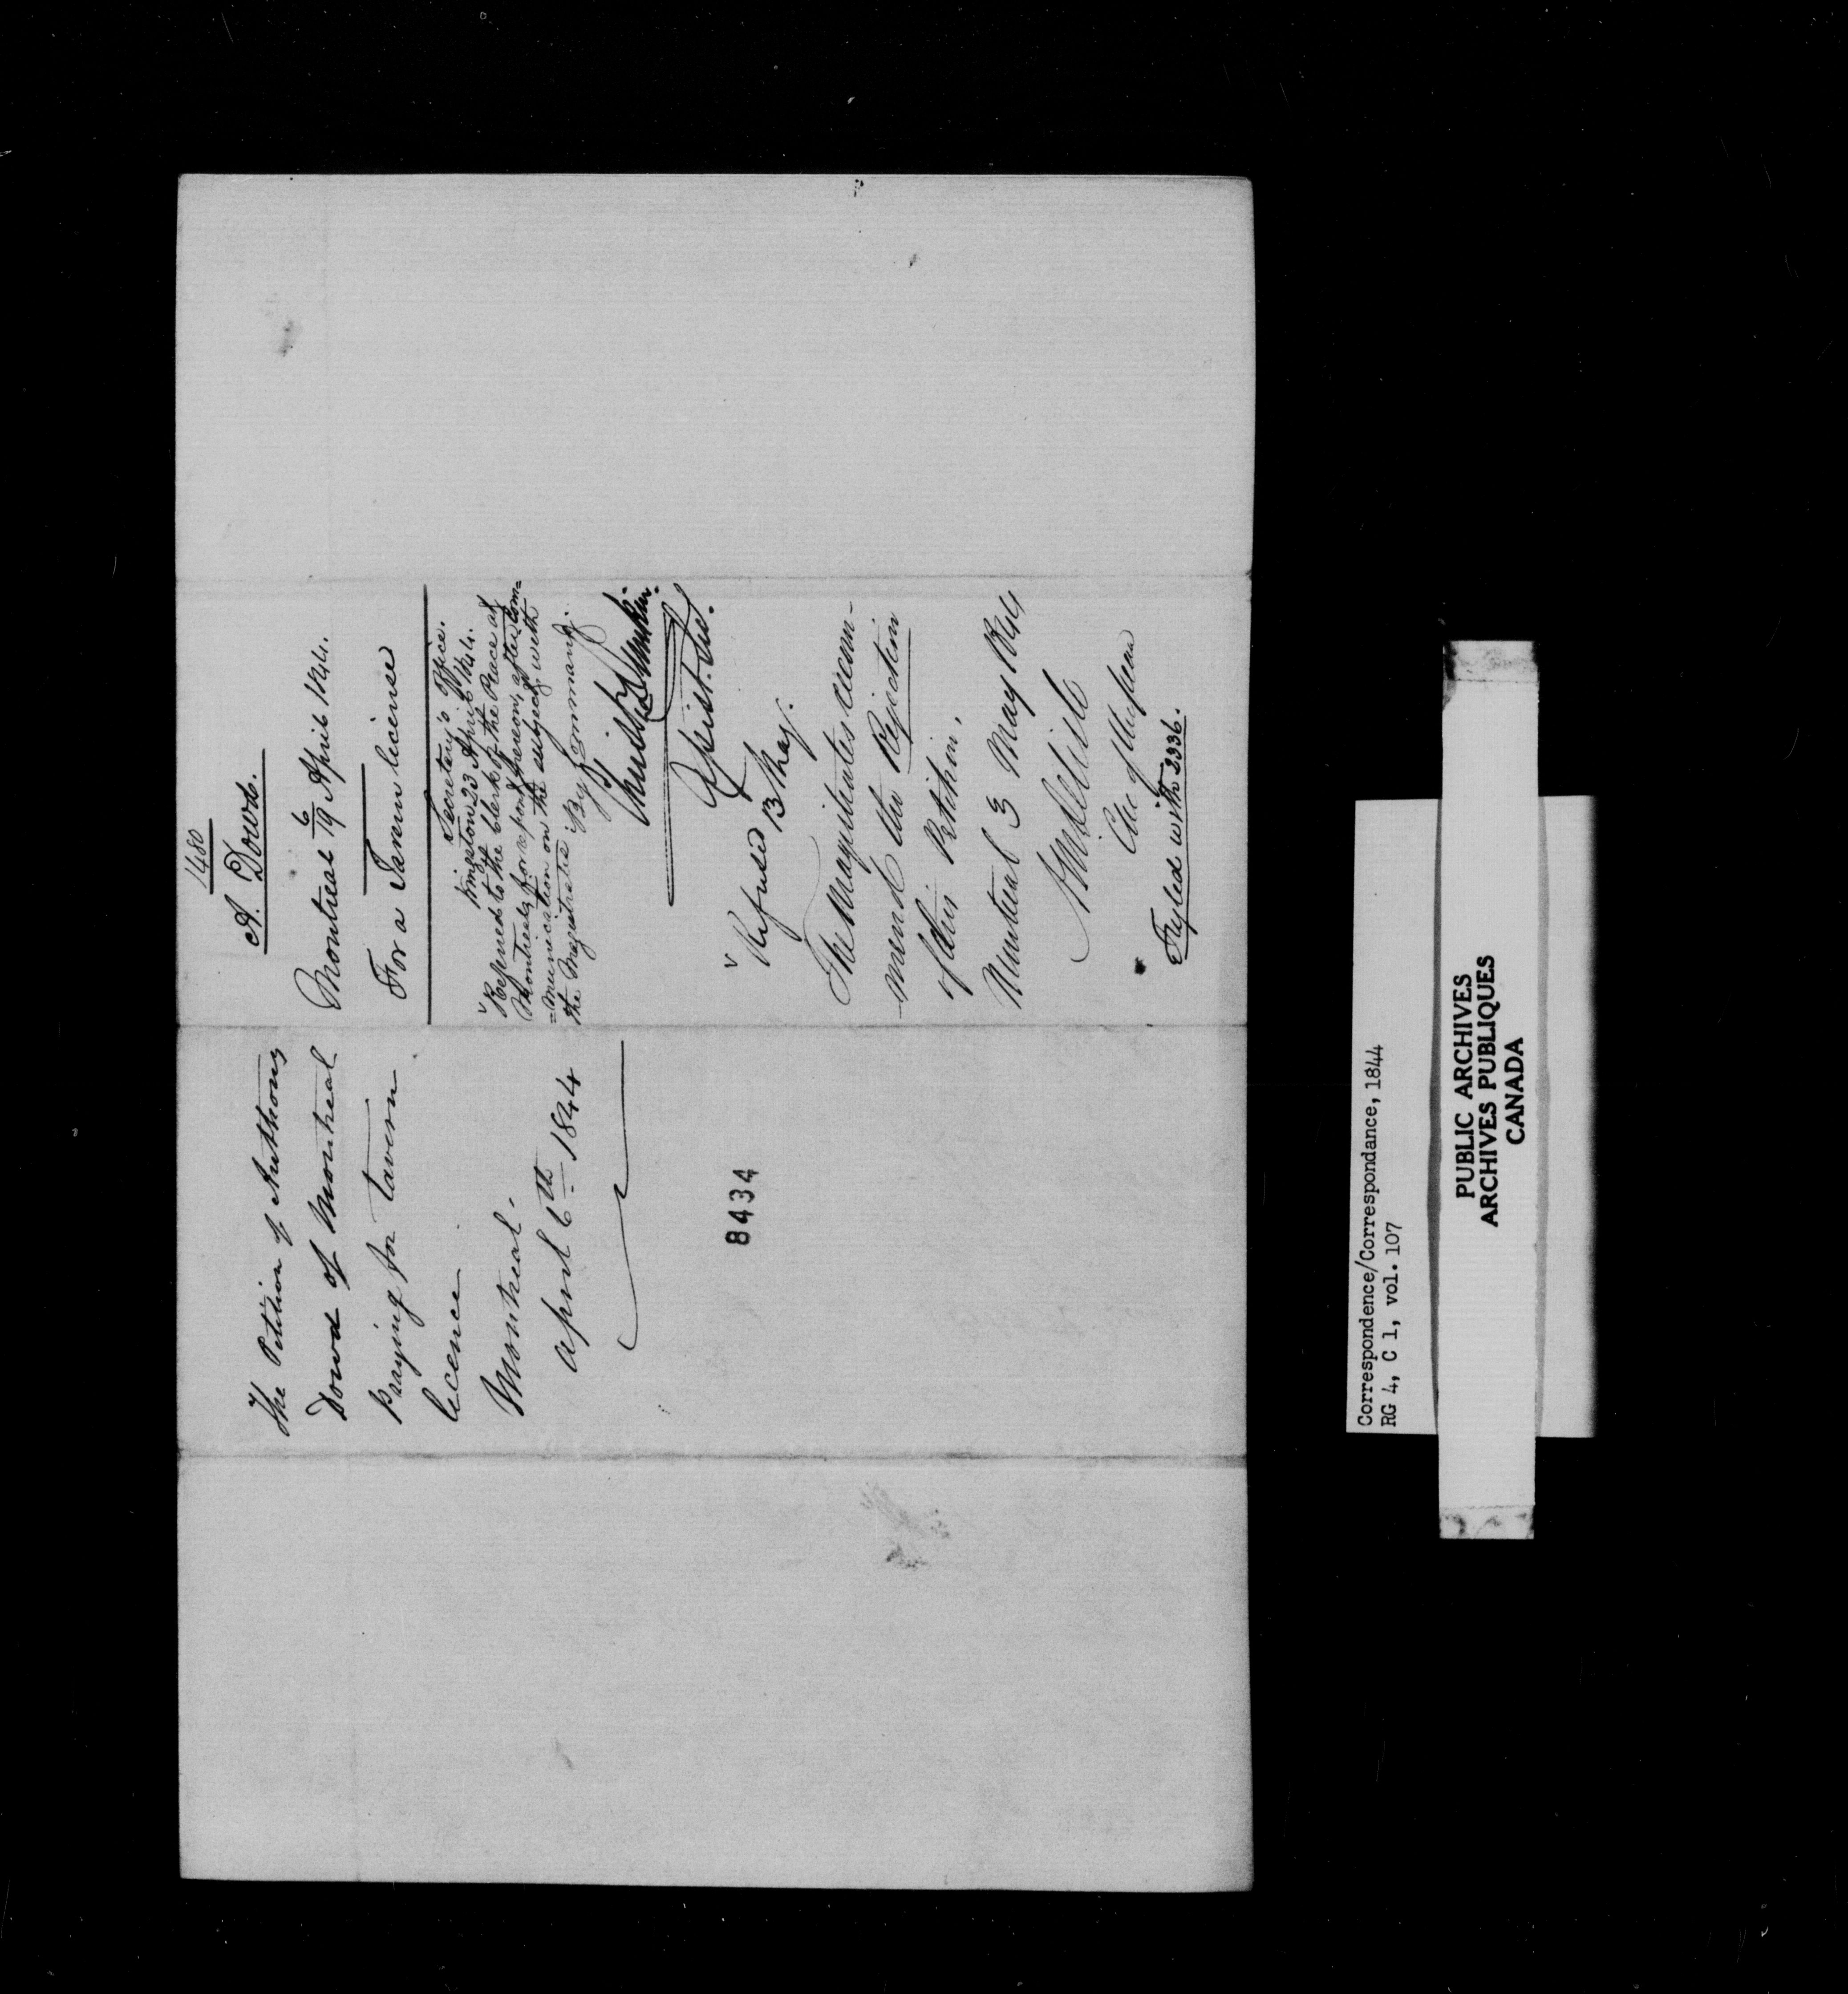 The Petition of Anthony
Dowd of Montreal
Praying for tavern
licence
Montreal.
April 6th 1844
8434
1480
A. Dowd.
Montreal 6/19 April 1844.
For a Tavern license
Secretary's Office.
Kingston 23 April 1844.
Referred to the Clerk of the Peace at
Montreal, for report hereon, after com=
=munication on the subject with
the Magistrates. By Command,
Assist. Sec.
Refused 13 May.
The Magistrates recom-
-mend the Rejection
of this Petition.
Montreal 3 May 1844
Clk of the Peace
Fyled with 2336.
Correspondence/Correspondance, 1844
RG 4, C 1, vol. 107
PUBLIC ARCHIVES
ARCHIVES PUBLIQUES
CANADA